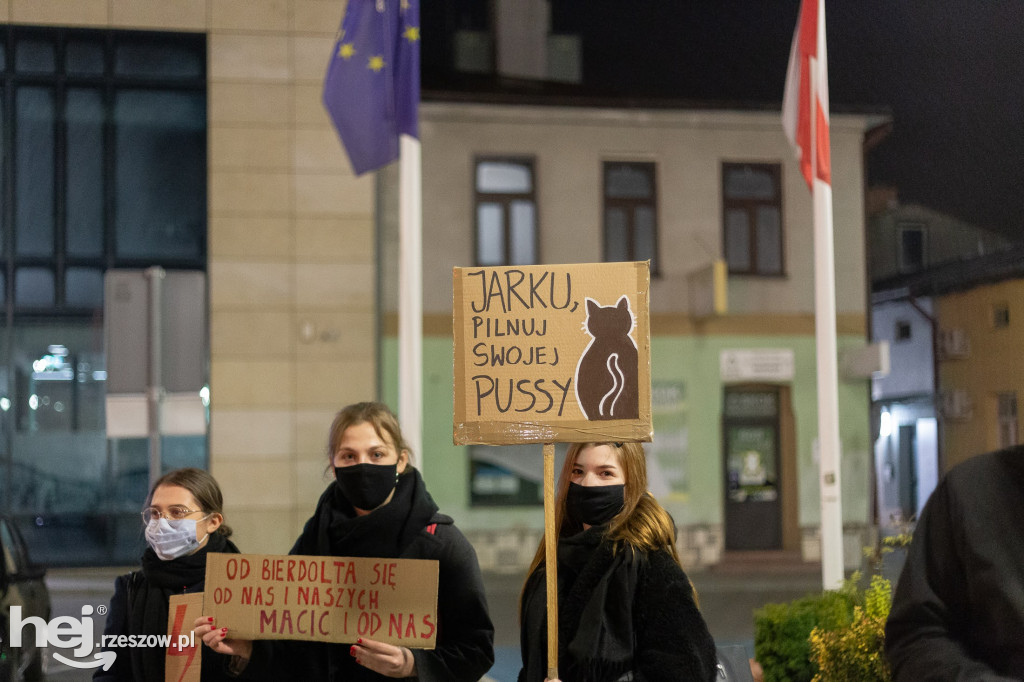 JARKU,
PILNUJ
SWOJEJ
PUSSY
OD BIERDOLTA SIĘ
OD NAS I NASZYCH
MACIC I OD NAS
hej®
:rzeszow.pl